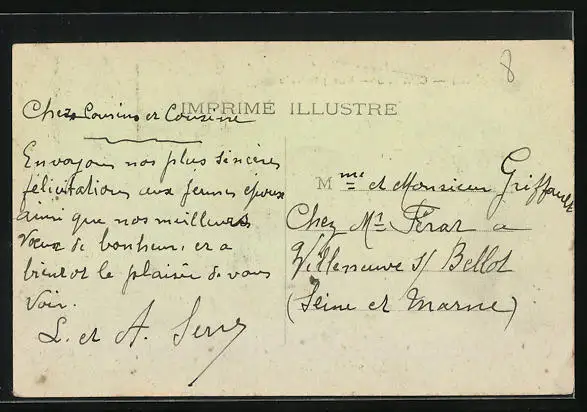 8
IMPRIMÉ ILLUSTRÉ
Chers Cousins et Cousine
Envoyons nos plus sincères
félicitations aux jeunes époux
ainsi que nos meilleurs
Vœux de bonheur, et a
bientot le plaisir de vous
voir.
L. et A.
Mme et Monsieur Griffault
Chez Mr Férat a
Villeneuve s/ Bellot
(Seine et Marne)